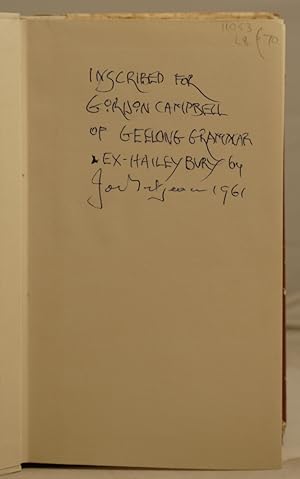 11053
L8 £70
INSCRIBED FOR
GORDON CAMPBELL
OF GEELONG GRAMMAR
EX-HAILEYBURY by
John Betjeman 1961